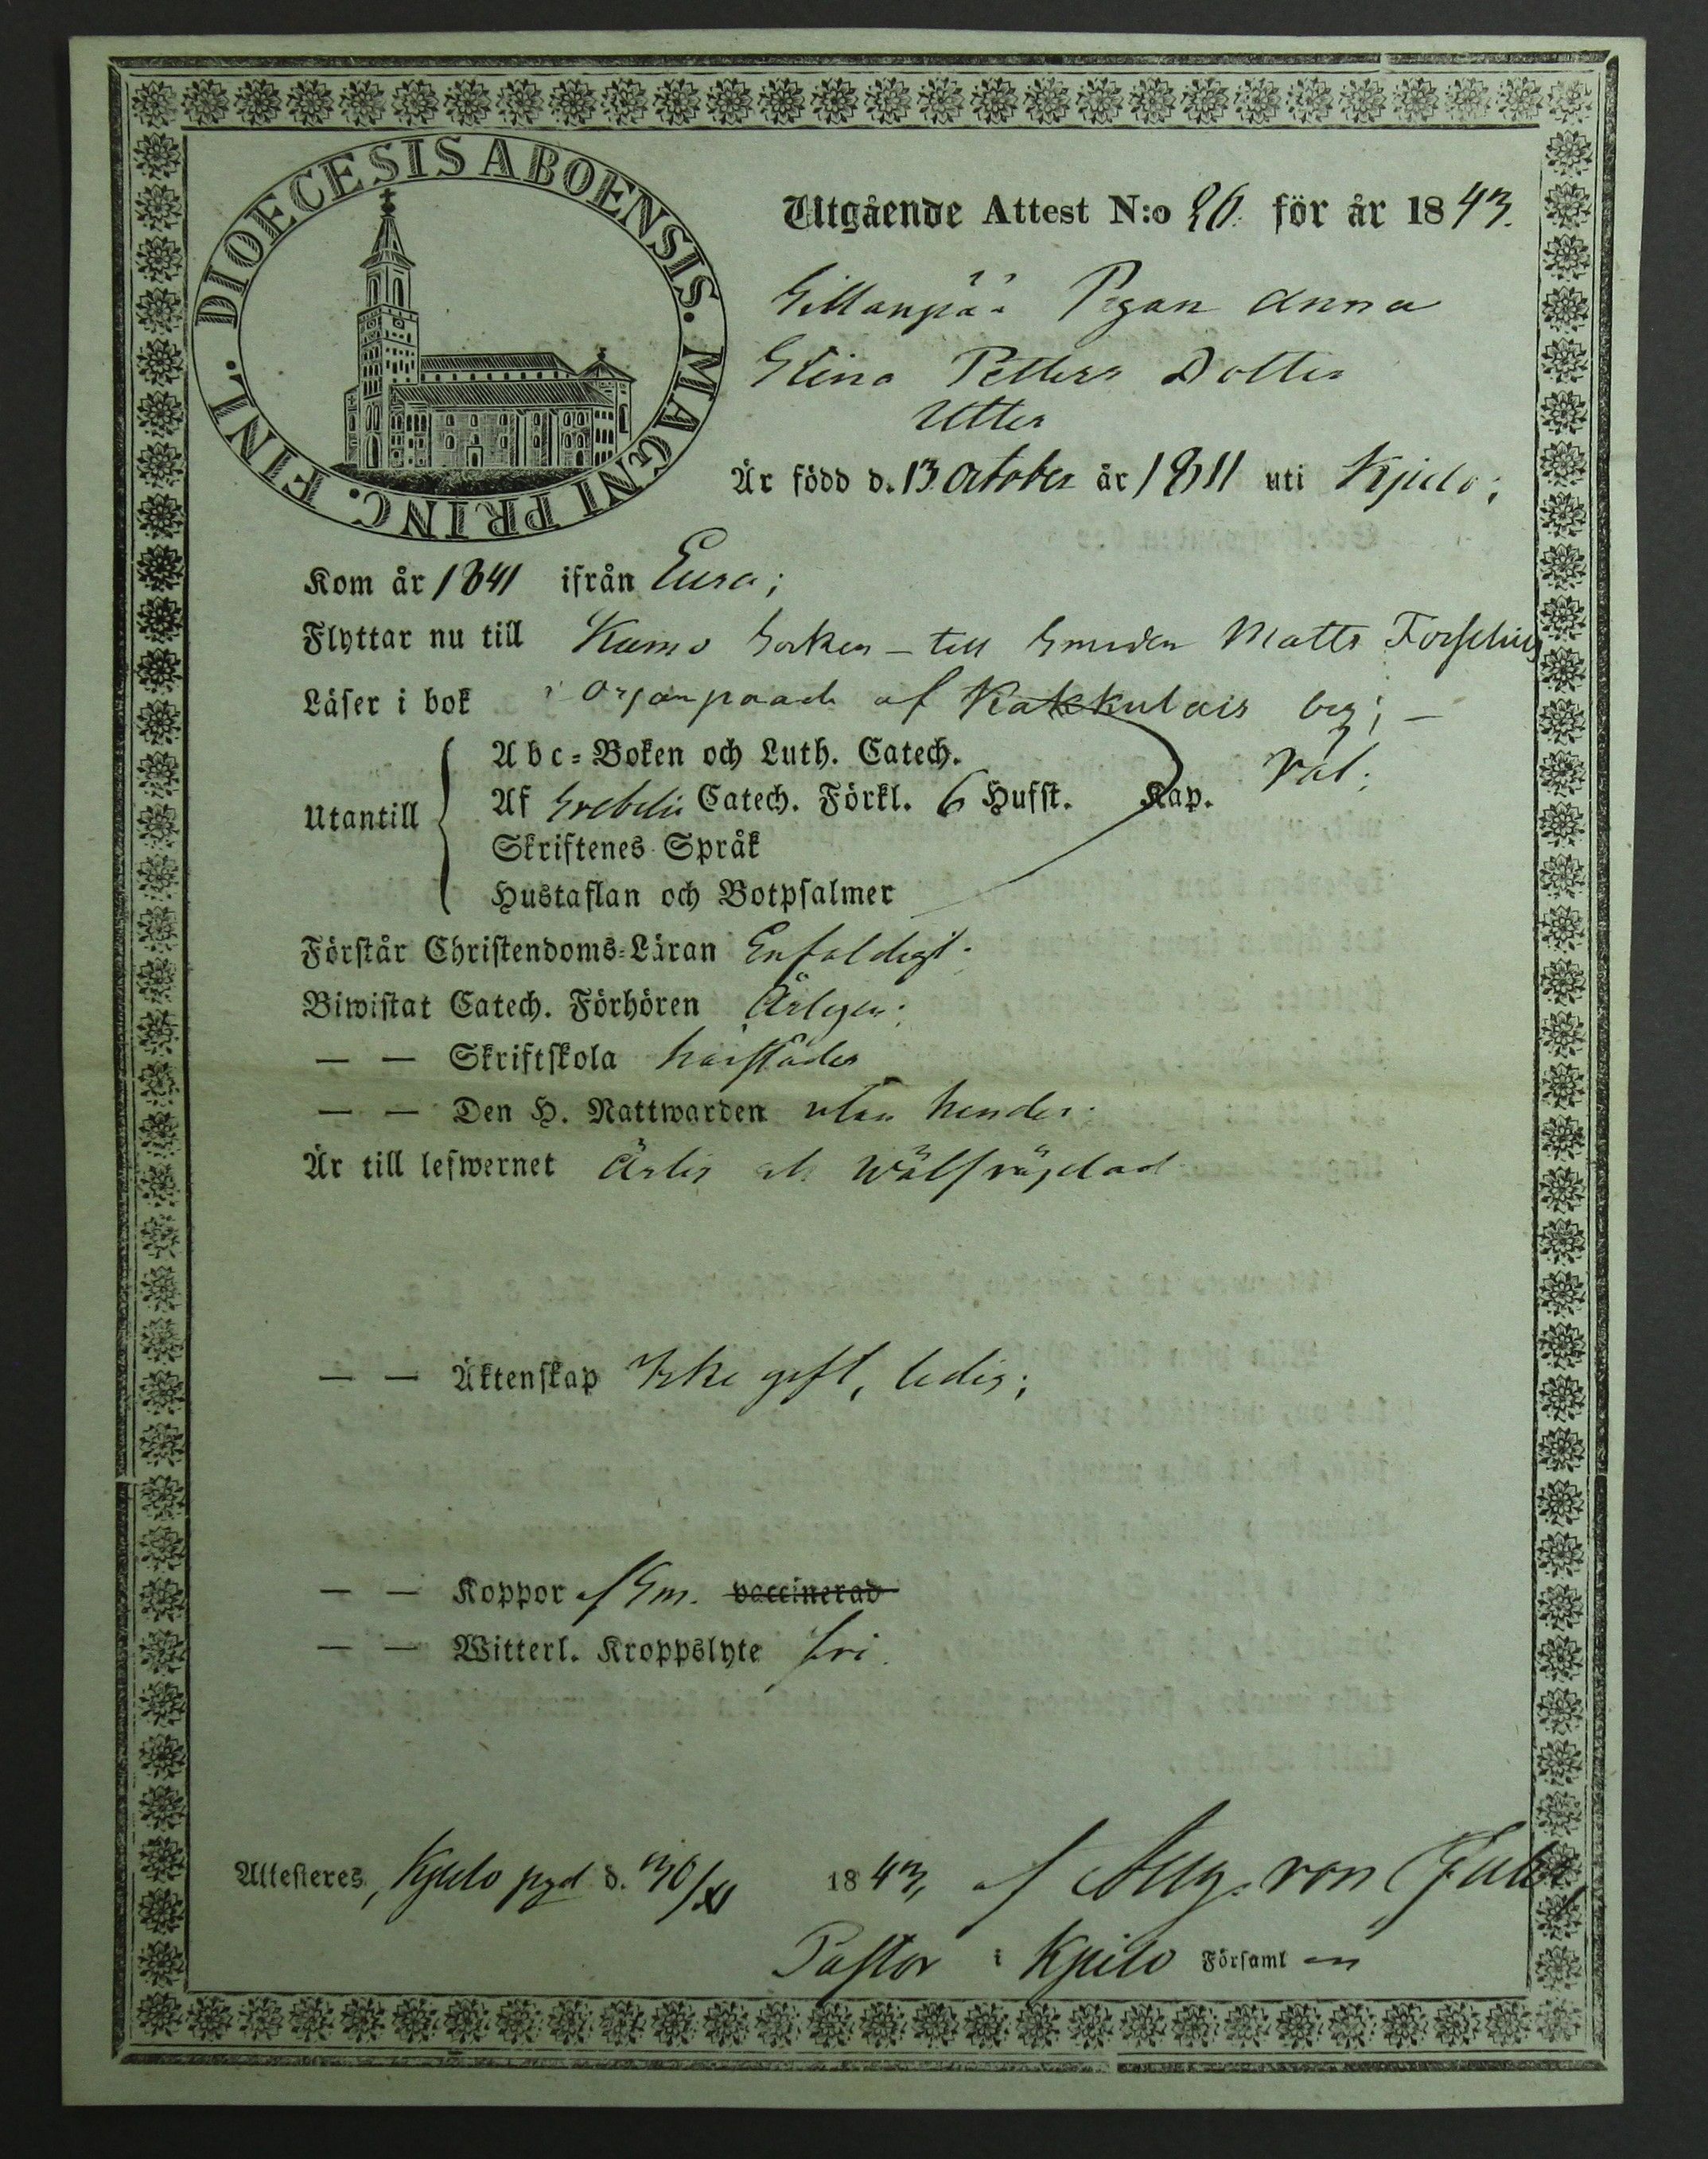 DIOECESIS ABOENSIS. MAGNI PRINC. FINL.
Utgående Attest N:o 26. för år 1843.
Sillanpää Pigan Anna
Stina Petters Dotter
Utter
Är född d. 13 October år 1811 uti Kjulo;
Kom år 1841 ifrån Eura;
Flyttar nu till Kumo Socken – till Smeden Matts Forselius
Läser i bok i af Kakkulais by; –
Abc-Boken och Luth. Catech. Väl;
Utantill Af Svebelii Catech. Förkl. 6 Hufst. Kap.
Skriftenes Språk
Hustaflan och Botpsalmer
Förstår Christendoms-Läran Enfaldigt.
Biwistat Catech. Förhören Årligen;
— — Skriftskola härstädes
— — Den H. Nattwarden utan hinder.
Är till lefwernet Ärlig och wälfräjdad
— — Äktenskap Icke gift, ledig;
— — Koppor vaccinerad
— — Witterl. Kroppslyte fri.
Attesteres, Kjulo pgd d. 30/XI 1843, af Aug. von
Pastor i Kjulo Församl en